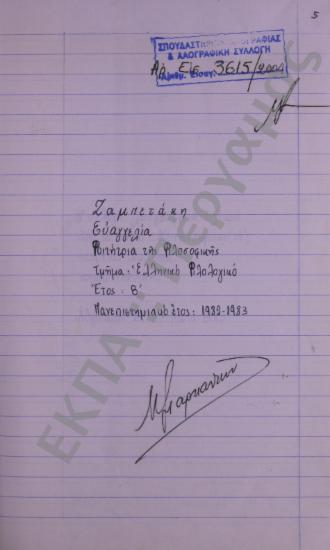 5
ΣΠΟΥΔΑΣΤΗΡΙΟ ΛΑΟΓΡΑΦΙΑΣ
& ΛΑΟΓΡΑΦΙΚΗ ΣΥΛΛΟΓΗ
Αριθμ. Εισαγ. 3615/2004
Ζαμπετάκη
Ευαγγελία
Φοιτήτρια της Φιλοσοφικής
Τμήμα: Ἑλληνικό Φιλολογικό
Ἔτος: Β'
Πανεπιστημιακό ἔτος: 1982-1983